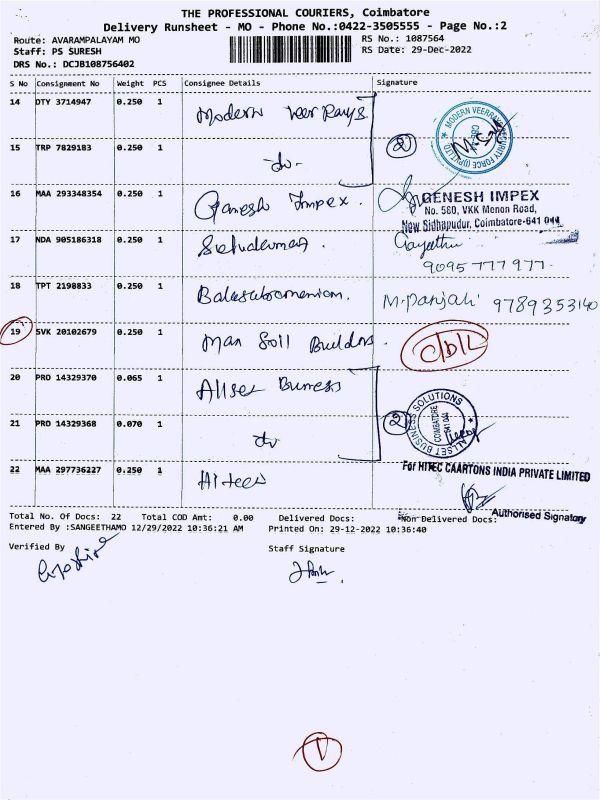 THE PROFESSIONAL COURIERS, Coimbatore
Delivery Runsheet - MO - Phone No.:0422-3505555 - Page No.:2
Route: AVARAMPALAYAM MO
RS No.: 1087564
Staff: PS SURESH
RS Date: 29-Dec-2022
DRS No.: DCJB108756402
S No Consignment No Weight PCS Consignee Details Signature
14 DTY 3714947 0.250 1 Modern Veer Rays
MODERN VEERRAYS SECURITY FORCE (I) PVT LTD
15 TRP 7829183 0.250 1 -do-
2
16 MAA 293348354 0.250 1 Ganesh Impex.
GENESH IMPEX
No. 560, VKK Menon Road,
New Sidhapudur, Coimbatore-641 044
17 NDA 905186318 0.250 1
Gayathri
9095 777 977
18 TPT 2198833 0.250 1 Balasubramaniam.
M. Panjali 9789353140
19 SVK 20102679 0.250 1 Man Soil Builders.
20 PRO 14329370 0.065 1 Allset Business
ALLSET BUSINESS SOLUTIONS
COIMBATORE
641 044
21 PRO 14329368 0.070 1 do
2
22 MAA 297736227 0.250 1 Hi-tees
For HITEC CAARTONS INDIA PRIVATE LIMITED
Authorised Signatory
Total No. Of Docs: 22 Total COD Amt: 0.00 Delivered Docs: Non-Delivered Docs:
Entered By :SANGEETHAMO 12/29/2022 10:36:21 AM Printed On: 29-12-2022 10:36:40
Verified By
Staff Signature
1